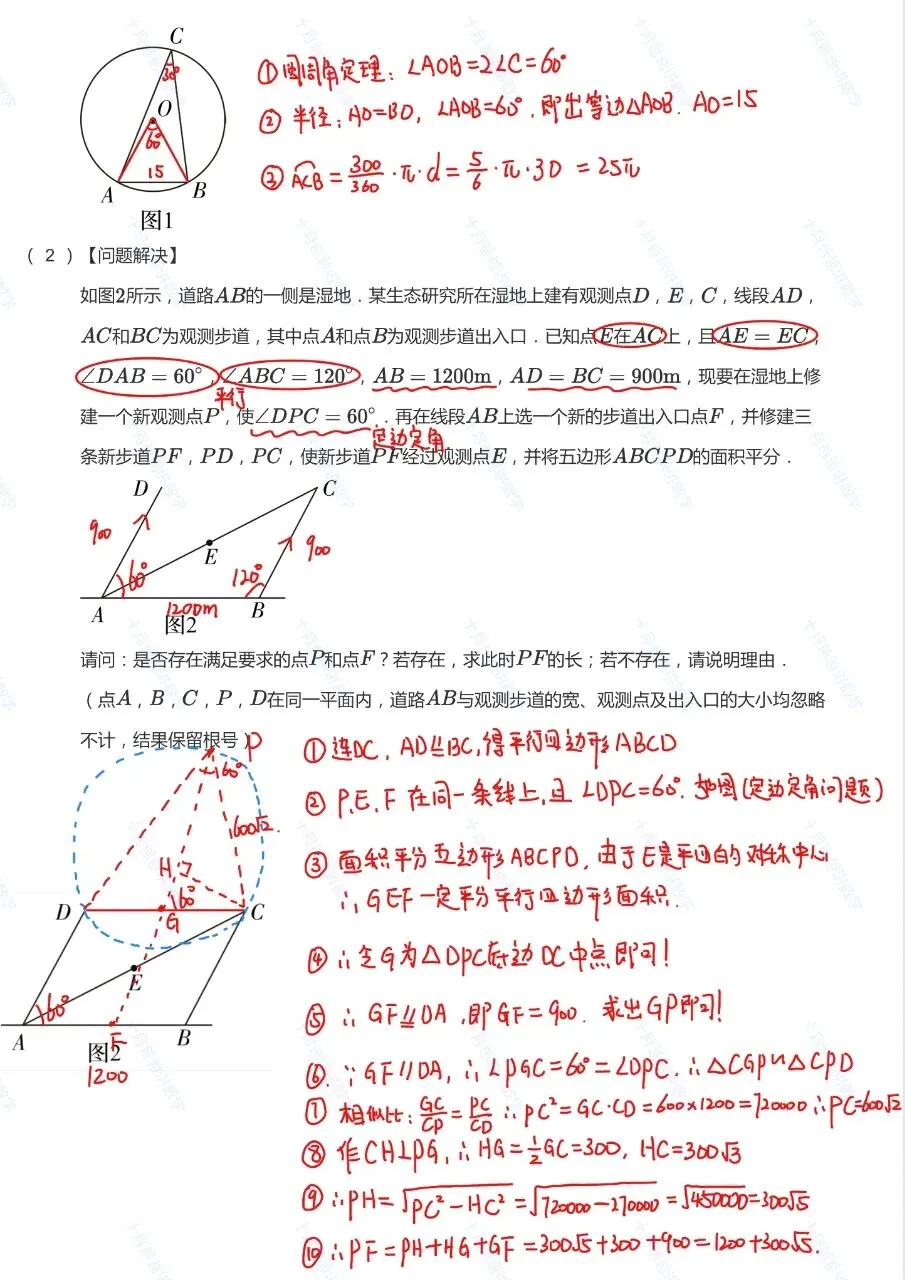 C
30°
O
60°
15
A
B
图1
①圆周角定理：∠AOB=2∠C=60°
②半径：AO=BO，∠AOB=60°，即出等边△AOB. AO=15
③ACB=300/360·π·d=5/6·π·30=25π
（2）【问题解决】
如图2所示，道路AB的一侧是湿地．某生态研究所在湿地上建有观测点D，E，C，线段AD，
AC和BC为观测步道，其中点A和点B为观测步道出入口．已知点E在AC上，且AE=EC，
∠DAB=60°，∠ABC=120°，AB=1200m，AD=BC=900m，现要在湿地上修
平行
建一个新观测点P，使∠DPC=60°．再在线段AB上选一个新的步道出入口点F，并修建三
定边定角
条新步道PF，PD，PC，使新步道PF经过观测点E，并将五边形ABCPD的面积平分．
D
C
900
E
900
60°
120°
A
1200m
B
图2
请问：是否存在满足要求的点P和点F？若存在，求此时PF的长；若不存在，请说明理由．
（点A，B，C，P，D在同一平面内，道路AB与观测步道的宽、观测点及出入口的大小均忽略
不计，结果保留根号）
P
60°
600√2
H
60°
D
G
C
E
60°
A
F
B
图2
1200
①连DC，AD∥BC，得平行四边形ABCD
②P、E、F在同一条线上，且∠DPC=60°．(定边定角问题)
③面积平分五边形ABCPD，由于E是平四的对称中心
∴GEF一定平分平行四边形面积．
④∴令G为△DPC底边DC中点即可！
⑤∴GF∥DA，即GF=900．求出GP即可！
⑥∵GF∥DA，∴∠PGC=60°=∠DPC．∴△CGP∽△CPD
⑦相似比：GC/CP=PC/CD ∴PC²=GC·CD=600×1200=720000∴PC=600√2
⑧作CH⊥PG，∴HG=1/2GC=300，HC=300√3
⑨∴PH=√PC²-HC²=√720000-270000=√450000=300√5
⑩∴PF=PH+HG+GF=300√5+300+900=1200+300√5.